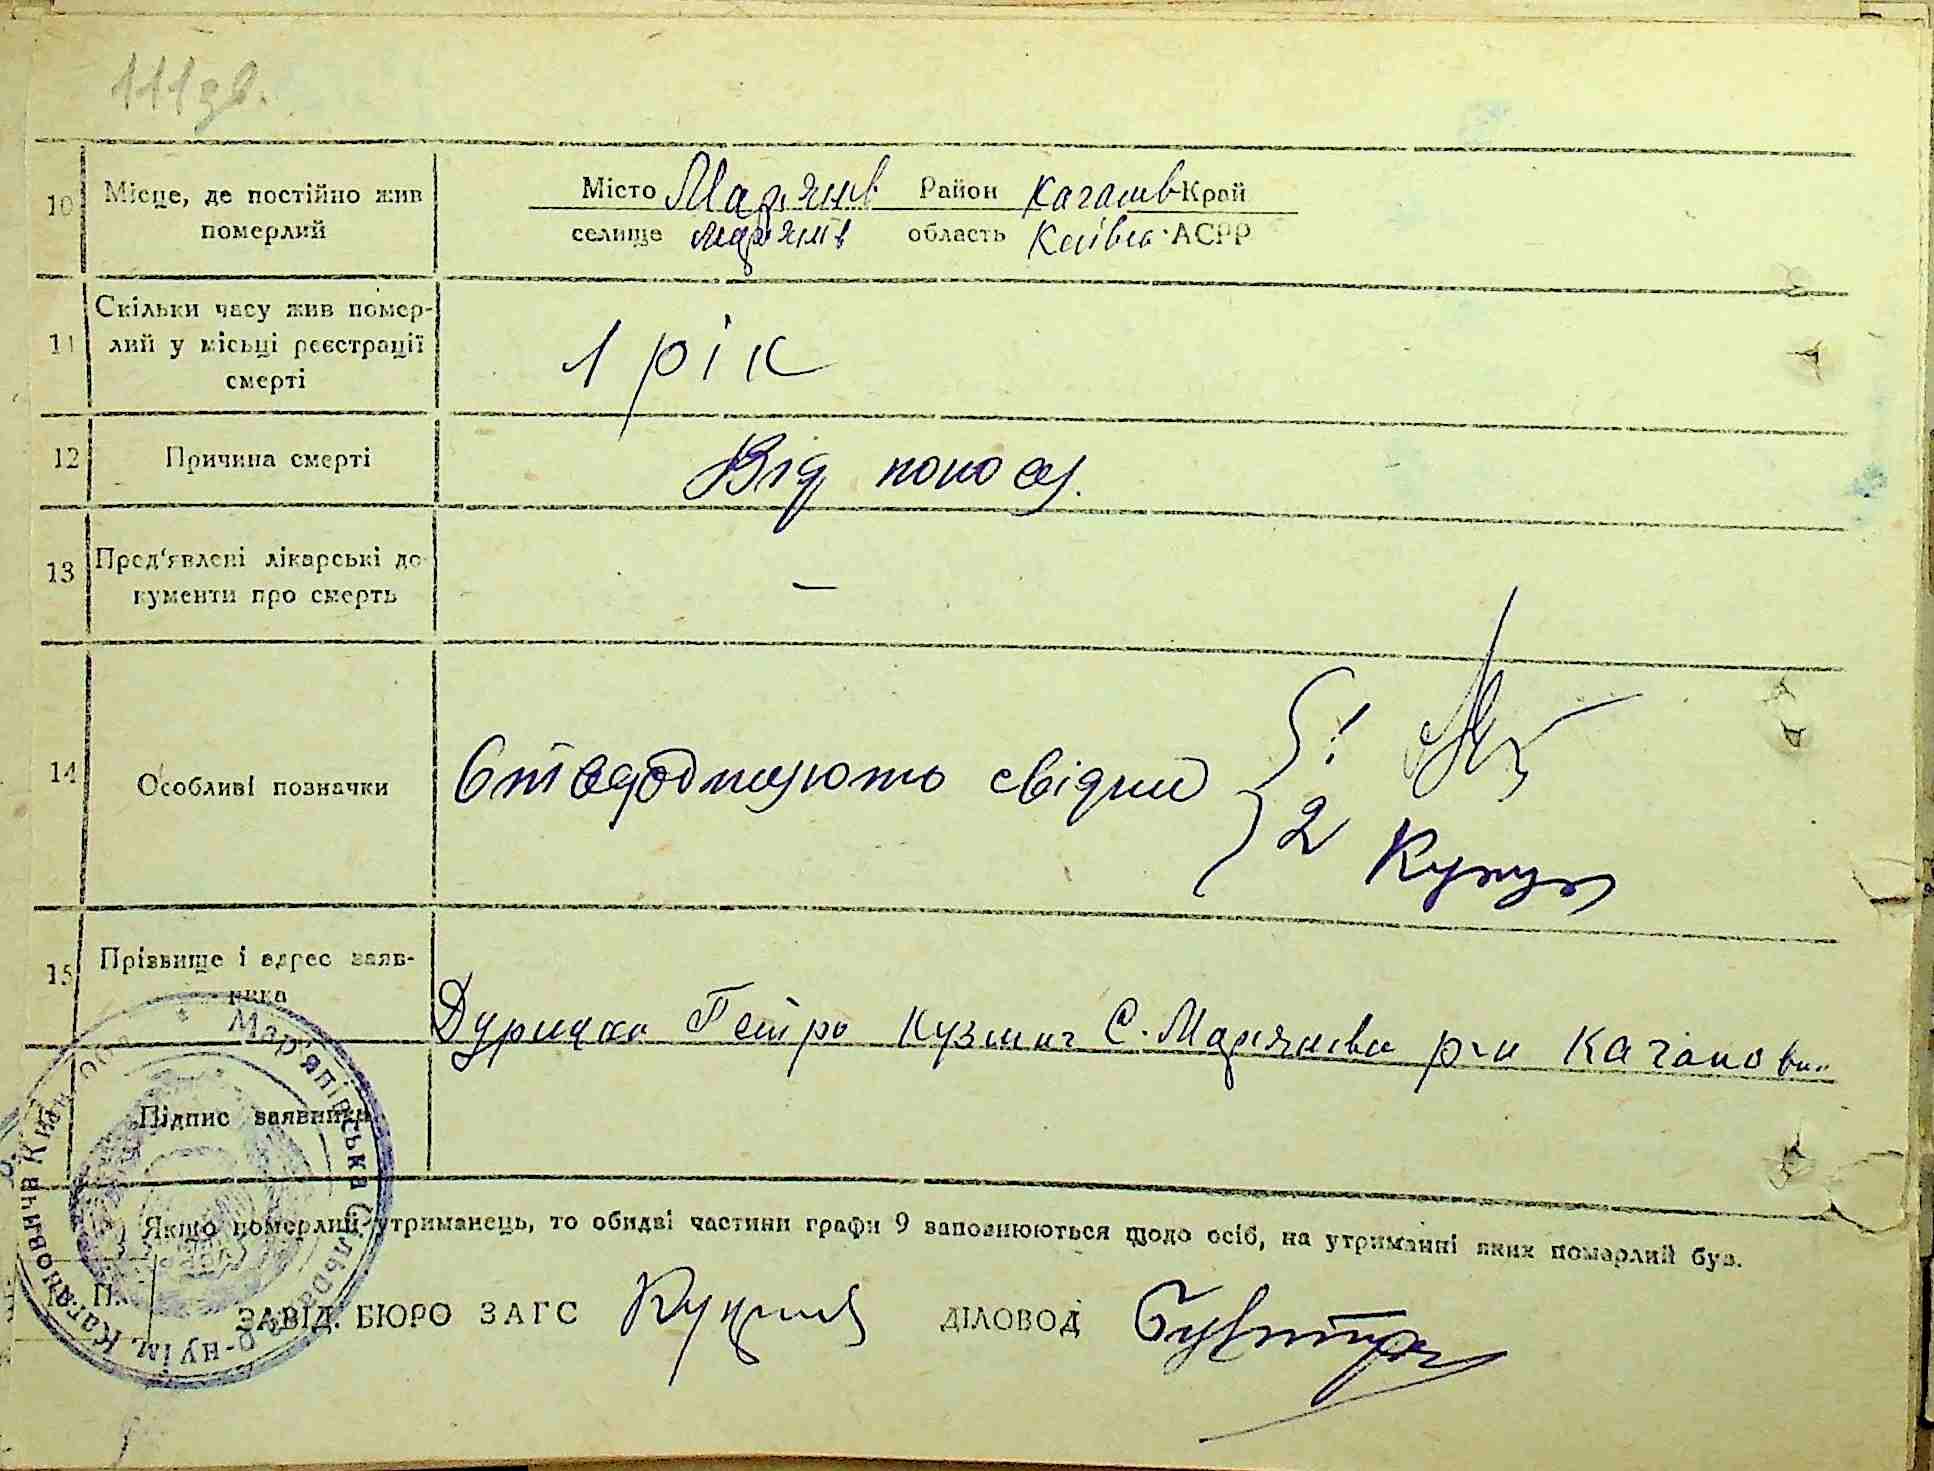 111зв.
10 Місце, де постійно жив померлий
Місто Мар'янів Район Каганов Край
селище Мар'янів область Київсь АСРР
11 Скільки часу жив помер-
лий у місьці реєстрації
смерті
1 рік
12 Причина смерті Від поносу.
13 Пред'явлені лікарські до-
кументи про смерть
—
14 Особливі позначки Стверджують свідки
1
2
15 Прізвище і адрес заяв-
ника
Петро Кузьмич С. Мар'янівка р-н Каганови
Підпис заявника
Якщо померлий утриманець, то обидві частини графи 9 заповнюються щодо осіб, на утриманні яких померлий був.
М. П.
ЗАВІД. БЮРО ЗАГС ДІЛОВОД
Сільрада р-ну ім. Кагановича